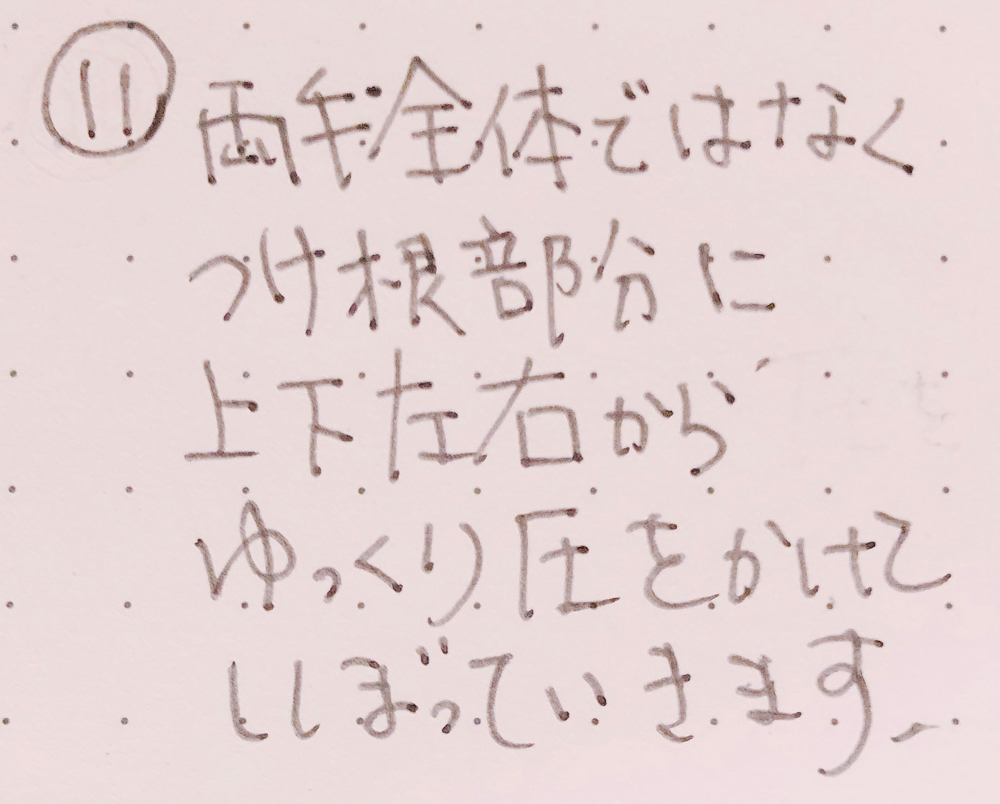 ⑪ 両手全体ではなく
つけ根部分に
上下左右から
ゆっくり圧をかけて
しぼっていきます、